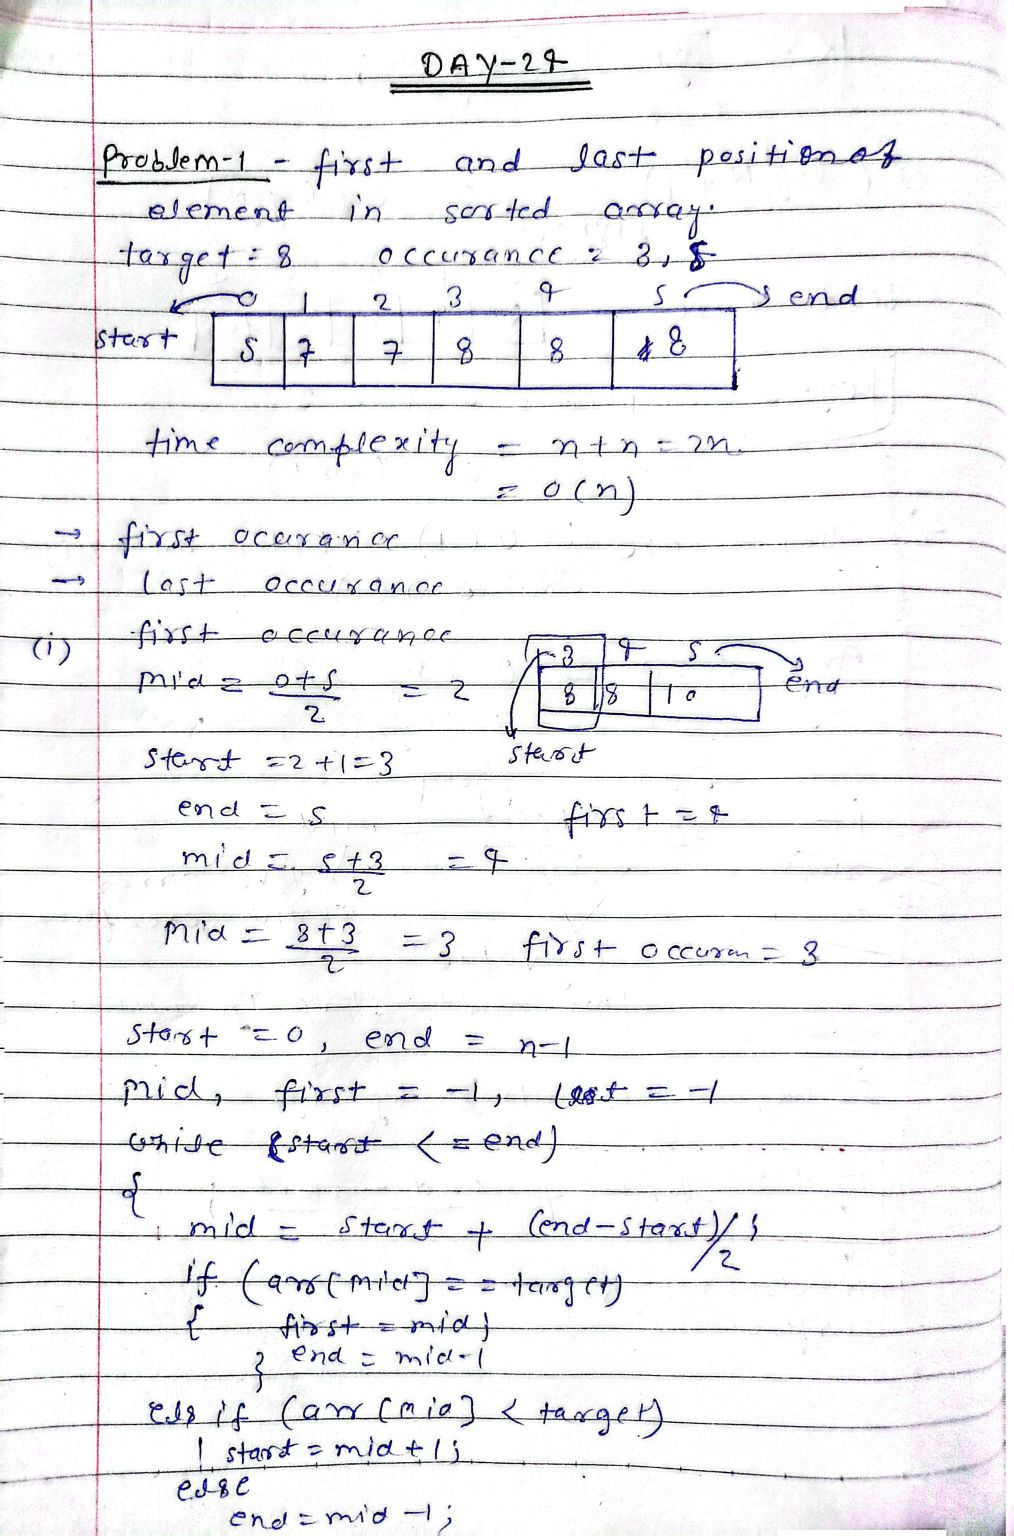 DAY-24
Problem-1 - first and last position of
element in sorted array.
target = 8 occurance = 3, 5
0 1 2 3 4 5 end
start 5 7 7 8 8 8
time complexity = n+n = 2n
= O(n)
→ first ocurance
→ last occurance
(i) first occurance
3 4 5
mid = 0+5/2 = 2 8 8 10 end
start = 2+1=3 start
end = 5 first = 4
mid = 5+3/2 = 4
mid = 3+3/2 = 3 first occuran = 3
start = 0, end = n-1
mid, first = -1, last = -1
while (start <= end)
{
mid = start + (end-start)/2;
if (arr[mid] == target)
{ first = mid;
} end = mid-1
els if (arr[mid] < target)
start = mid+1;
else
end = mid-1;